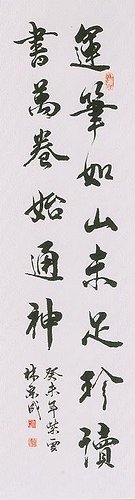 運筆如山未足珍讀
書萬卷始通神
癸未年紫雲
林